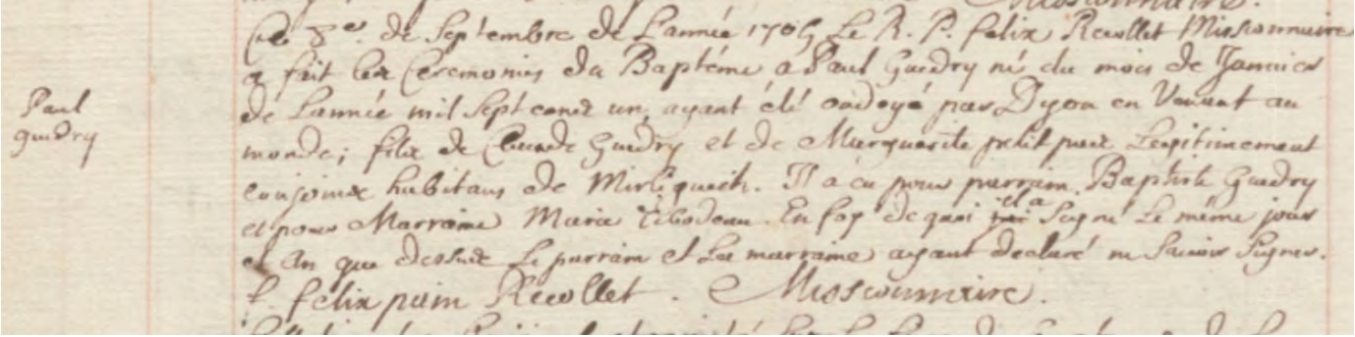 Missonnaire.
Ce 8er. de Septembre de L'année 1705 Le R. P. felix Recollet Missonnaire
a fait les Ceremonies du Baptéme a Paul Guedry né du mois de Janvier
de L'année mil Sept cens un, ayant été ondoyé par Dyon en Venant au
monde; fils de Claude Guedry et de Marguerite petit pas Legitimement
conjoins habitans de Mirliguech. Il a eu pour parrain Baptiste Guedry
et pour Marraine Marie Tibodeau. En foy de quoi il a Signé Le même jour
et An que dessus Le parrain et La marraine ayant declaré ne Savoir Signer.
f. felix pain Recollet. Missonnaire.
Paul
guedry